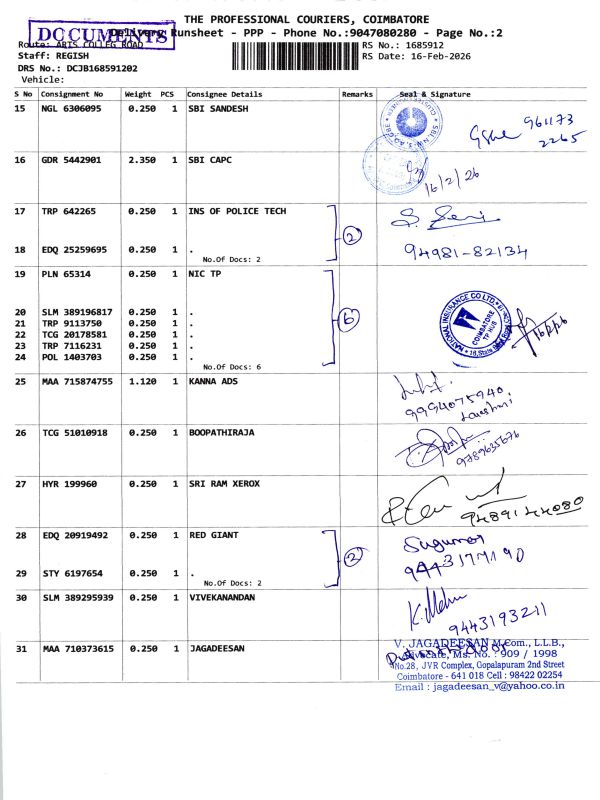 THE PROFESSIONAL COURIERS, COIMBATORE
DOCUMENTS
Delivery Runsheet - PPP - Phone No.:9047080280 - Page No.:2
Route: ARTS COLLEG ROAD
RS No.: 1685912
Staff: REGISH
RS Date: 16-Feb-2026
DRS No.: DCJB168591202
Vehicle:
S No Consignment No Weight PCS Consignee Details Remarks Seal & Signature
15 NGL 6306095 0.250 1 SBI SANDESH
961173
2265
16 GDR 5442901 2.350 1 SBI CAPC
16/2/26
17 TRP 642265 0.250 1 INS OF POLICE TECH
2
18 EDQ 25259695 0.250 1 . 94981-82134
No.Of Docs: 2
19 PLN 65314 0.250 1 NIC TP
NATIONAL INSURANCE CO LTD
COIMBATORE
TP HUB
20 SLM 389196817 0.250 1 .
6
21 TRP 9113750 0.250 1 .
22 TCG 20178581 0.250 1 .
23 TRP 7116231 0.250 1 .
24 POL 1403703 0.250 1 .
No.Of Docs: 6
25 MAA 715874755 1.120 1 KANNA ADS
9994075940
Laxshmi
26 TCG 51010918 0.250 1 BOOPATHIRAJA
9789635676
27 HYR 199960 0.250 1 SRI RAM XEROX
9489144080
28 EDQ 20919492 0.250 1 RED GIANT
Sugumar
2
29 STY 6197654 0.250 1 .
No.Of Docs: 2
30 SLM 389295939 0.250 1 VIVEKANANDAN
9443193211
31 MAA 710373615 0.250 1 JAGADEESAN
V. JAGADEESAN M.Com., L.L.B.,
Advocate, Ms. No. : 909 / 1998
No.28, JVR Complex, Gopalapuram 2nd Street
Coimbatore - 641 018 Cell : 98422 02254
Email : jagadeesan_v@yahoo.co.in